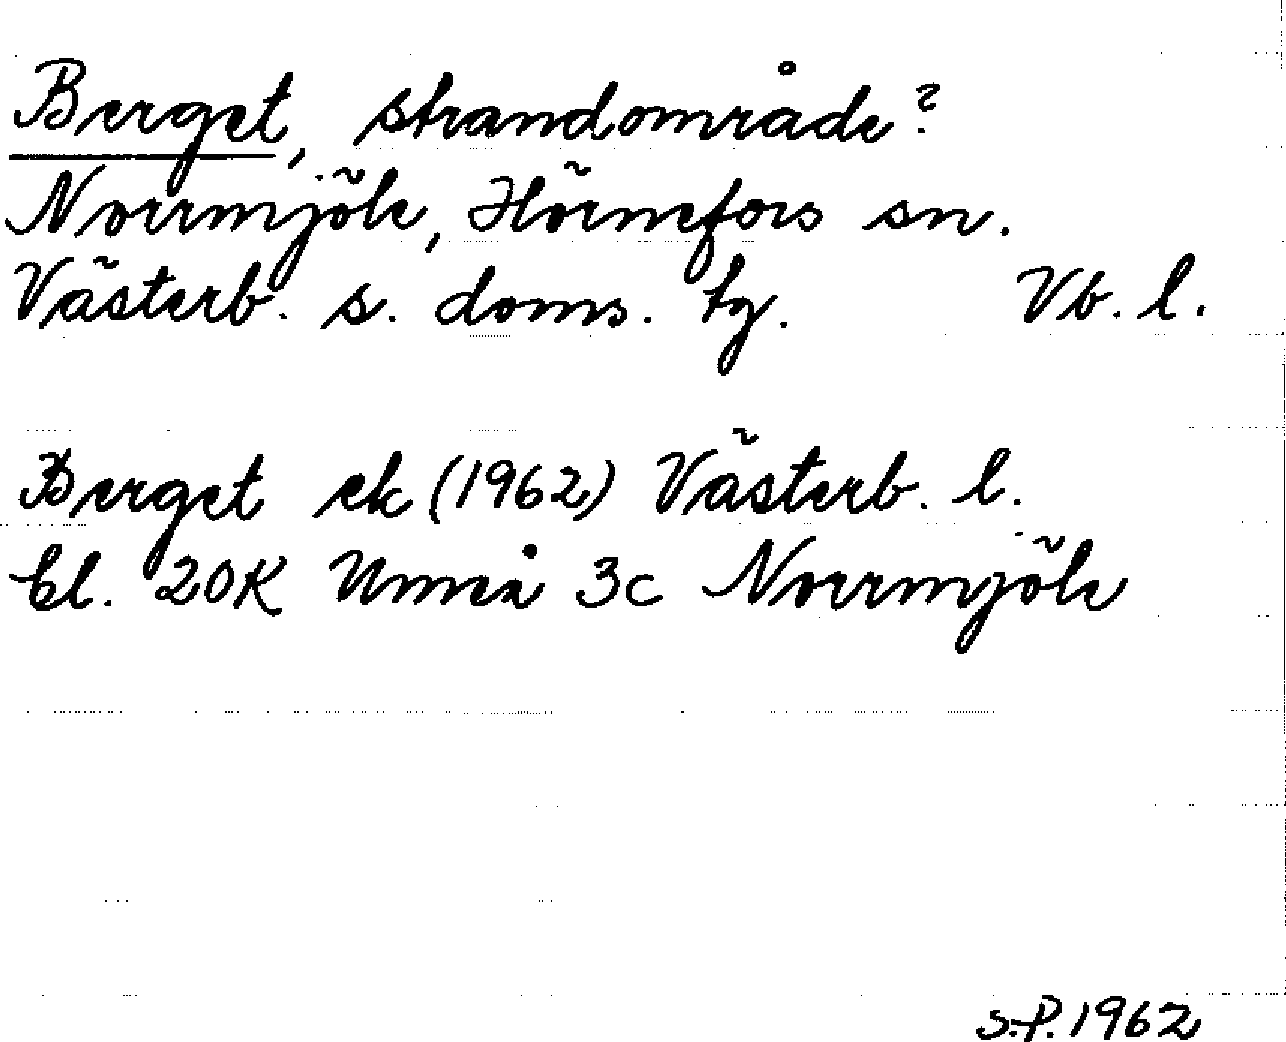 Berget, strandområde?
Norrmjöle, Hörnefors sn.
Västerb. s. doms. tg. Vb. l.
Berget ek (1962) Västerb. l.
bl. 20K Umeå 3c Norrmjöle
S.P. 1962